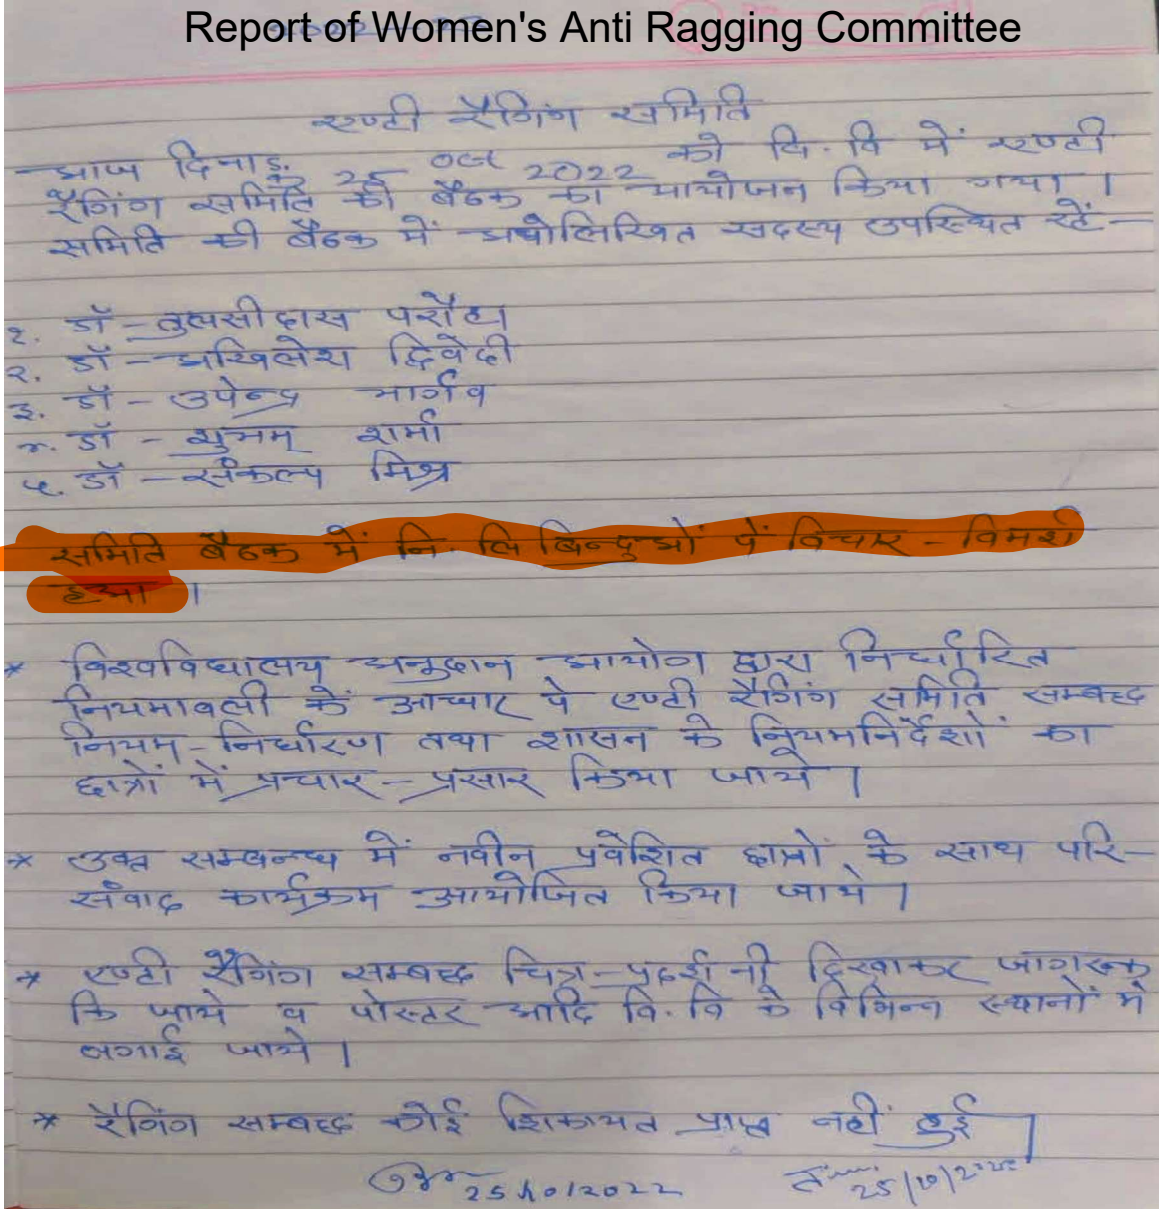 Report of Women's Anti Ragging Committee
एण्टी रैगिंग समिति
आज दिनाङ्क 25 oct 2022 को वि. वि में एण्टी
रैगिंग समिति की बैठक का आयोजन किया गया ।
समिति की बैठक में अधोलिखित सदस्य उपस्थित रहें –
१. डॉ – तुलसीदास परौहा
२. डॉ – अखिलेश द्विवेदी
३. डॉ – उपेन्द्र भार्गव
४. डॉ – शुभम् शर्मा
५. डॉ – संकल्प मिश्र
समिति बैठक में नि. लि बिन्दुओं पे विचार - विमर्श
हुआ ।
* विश्वविद्यालय अनुदान आयोग द्वारा निर्धारित
नियमावली के आधार पे एण्टी रैगिंग समिति सम्बद्ध
नियम - निर्धारण तथा शासन के नियमनिर्देशों का
छात्रों में प्रचार - प्रसार किया जाये ।
* उक्त सम्बन्ध में नवीन प्रवेशित छात्रों के साथ परि-
संवाद कार्यक्रम आयोजित किया जाये ।
* एण्टी रैगिंग सम्बद्ध चित्र - प्रदर्शनी दिखाकर जागरूक
कि जाये व पोस्टर आदि वि. वि के विभिन्न स्थानों में
लगाई जाये ।
* रैगिंग सम्बद्ध कोई शिकायत प्राप्त नहीं हुई ।
25/10/2022 25/10/2022